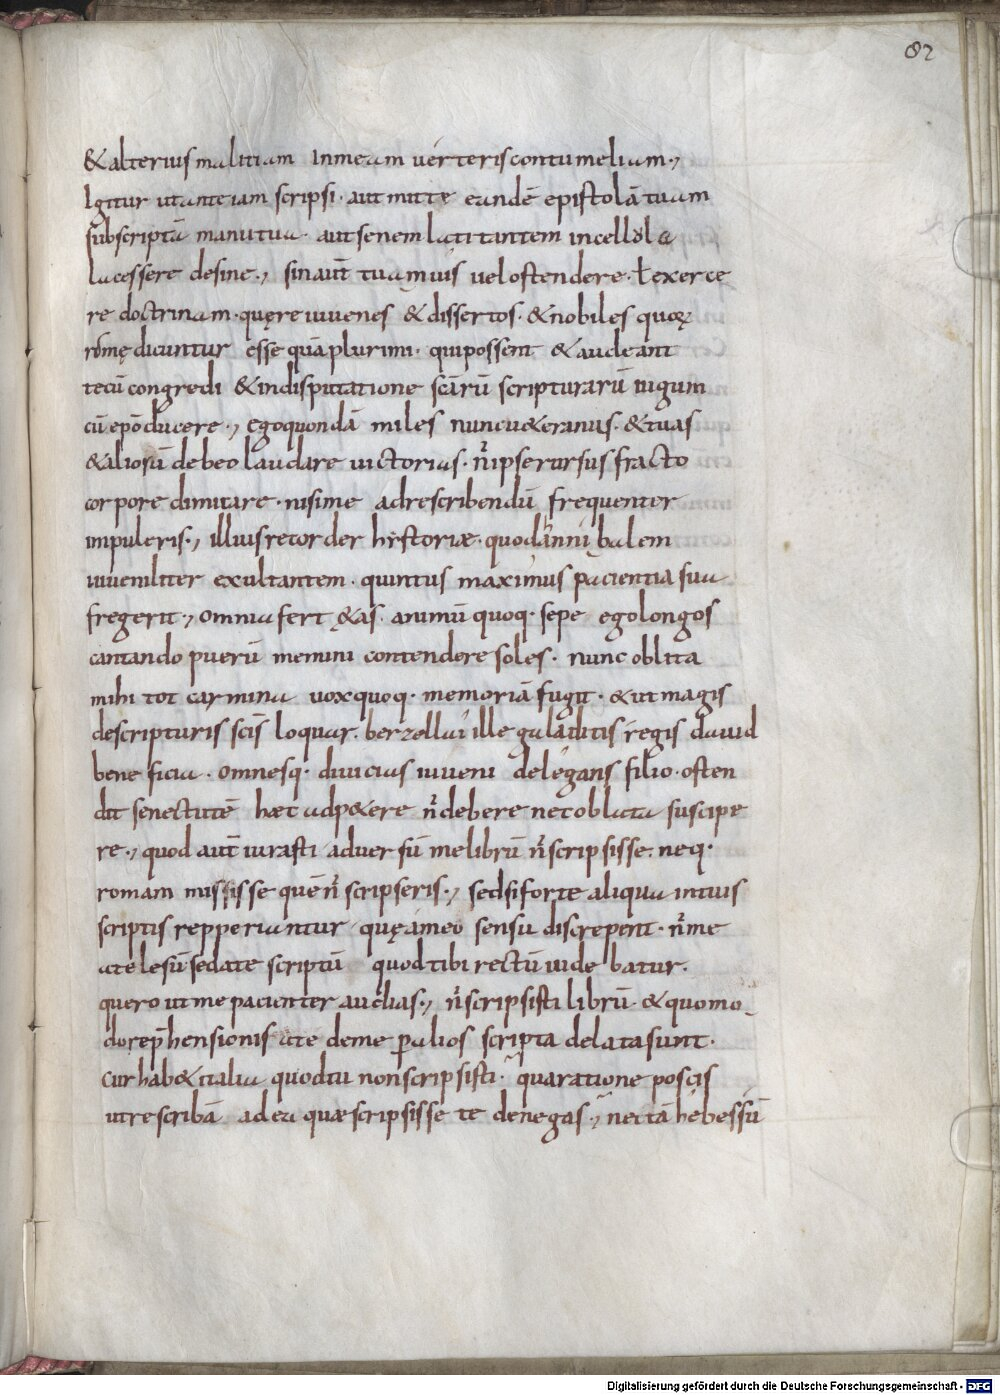 82
& alterius malitiam In meam uérteris contumeliam·,
Igitur ut ante iam scripsi· aut mitte eandē epistolā tuam
subscriptā manu tua· aut senem latitantem in cellola
lacessere desine·, sin aut̄ tuam uis uel ostendere· ł exerce
re doctrinam· quęre iuuenes & dissertos· & nobiles quoꝝ
romę dicuntur esse quā plurimi· qui possent & audeant
tecū congredi & in disputatione scārū scripturarū iugum
cū ep̄o ducere·, Ego quondā miles nunc u&eranus· & tuas
& aliorū debeo laudare uictorias· n̄ ipse rursus fracto
corpore dimicare· nisi me ad rescribendū frequenter
impuleris·, illius recorder hystoriæ· quod annibalem
iuueniliter exultantem· quintus maximus pacientia sua
fregerit·, omnia fert &as· animū quoq· sepe ego longos
cantando puerū memini contendere soles· nunc oblita
mihi tot carmina uox quoq· memoriā fugit· & ut magis
de scripturis scīs loquar· berzellai ille galaditis regis dauid
beneficia· omnesq· diuicias iuueni delegans filio· osten
dit senectutē hæc adp&ere n̄ debere nec oblata suscipe
re·, quod aut̄ iurasti aduersū me librū n̄ scripsisse· neq·
romam mississe quē n̄ scripseris·, sed si forte aliqua in tuis
scriptis repperiantur quę a meo sensu discrepent· n̄ me
a te lesū sed a te scriptū quod tibi rectū uidebatur·
quero ut me pacienter audias·, n̄ scripsisti librū· & quomo
do rep̄hensionis a te de me p̱ alios scripta delata sunt·
cur hab& italia quod tu non scripsisti· qua ratione poscis
ut rescribā ad ea quæ scripsisse te denegas·, nec tā hebes sū
Digitalisierung gefördert durch die Deutsche Forschungsgemeinschaft - DFG